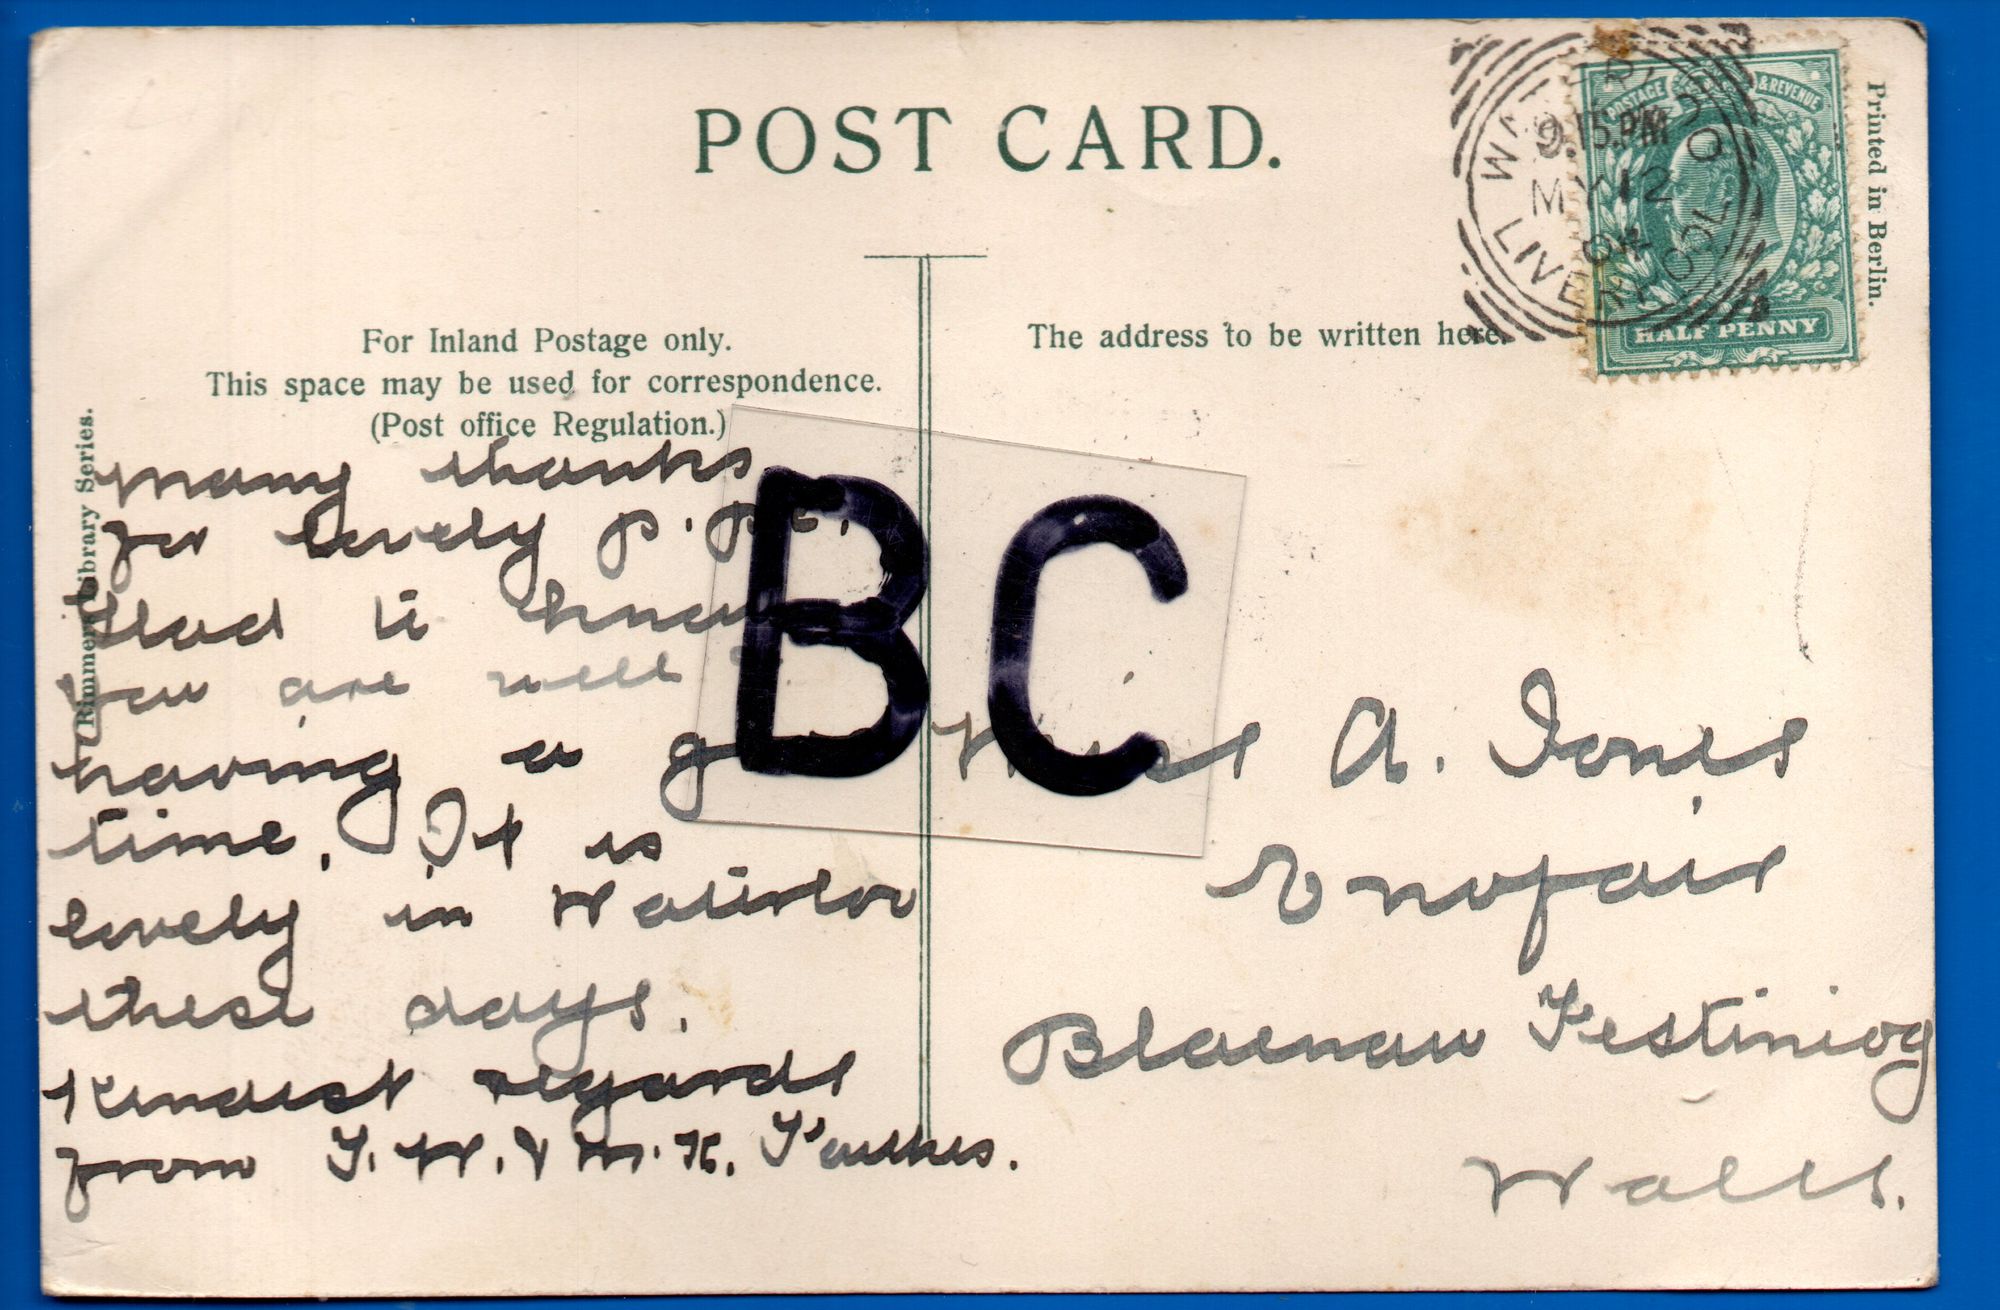 POST CARD.
Printed in Berlin.
WATERLOO
9.15.PM
MY 12
04
LIVERPOOL
POSTAGE & REVENUE
HALF PENNY
For Inland Postage only.
This space may be used for correspondence.
(Post office Regulation.)
The address to be written here.
Rimmers' Library Series.
BC
Many thanks
for lovely p. pc.
Glad to know
you are well &
having a
time. It is
lovely in Waterloo
these days.
Kindest regards
from F. W. & M. K.
Miss A. Jones
Enofair
Blaenau Festiniog
Wales.